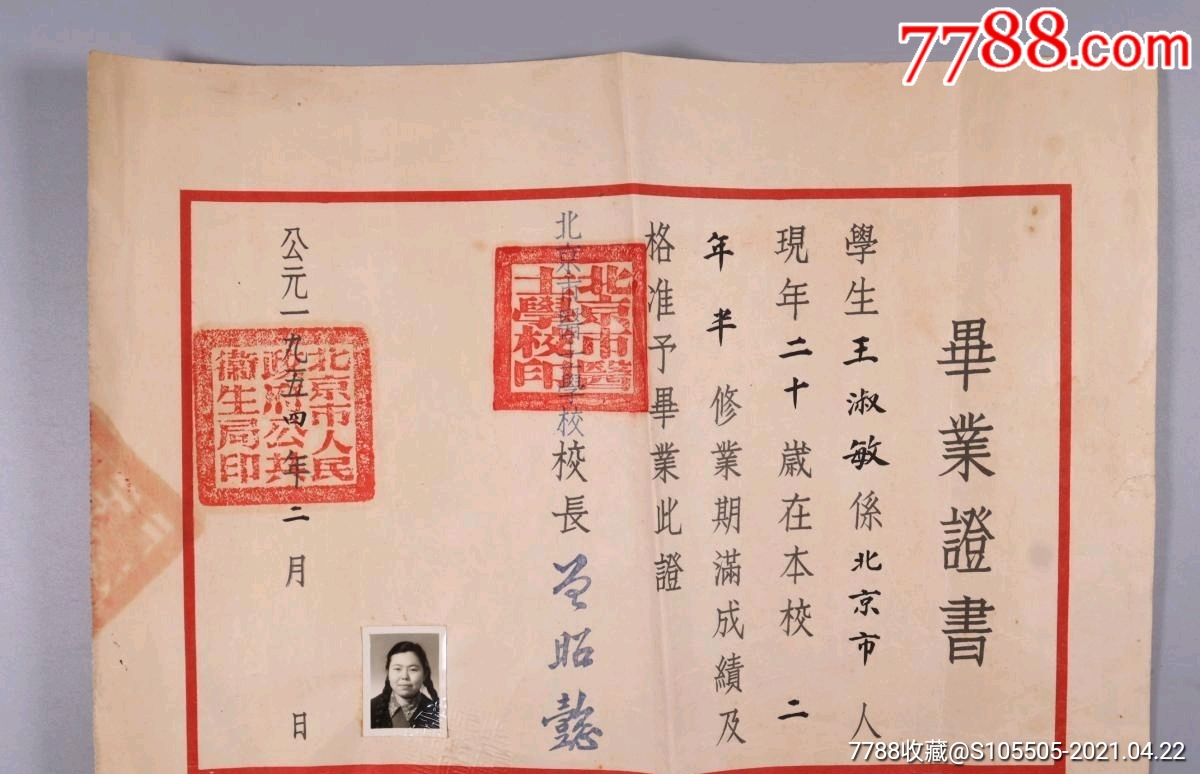 7788.com
畢業證書
學生王淑敏係北京市人
現年二十歲在本校二
年半修業期滿成績及
格准予畢業此證
北京市醫士學校校長曾昭懿
北京市醫
士學校印
公元一九五四年二月日
北京市人民
政府公共
衛生局印
7788收藏@S105505-2021.04.22